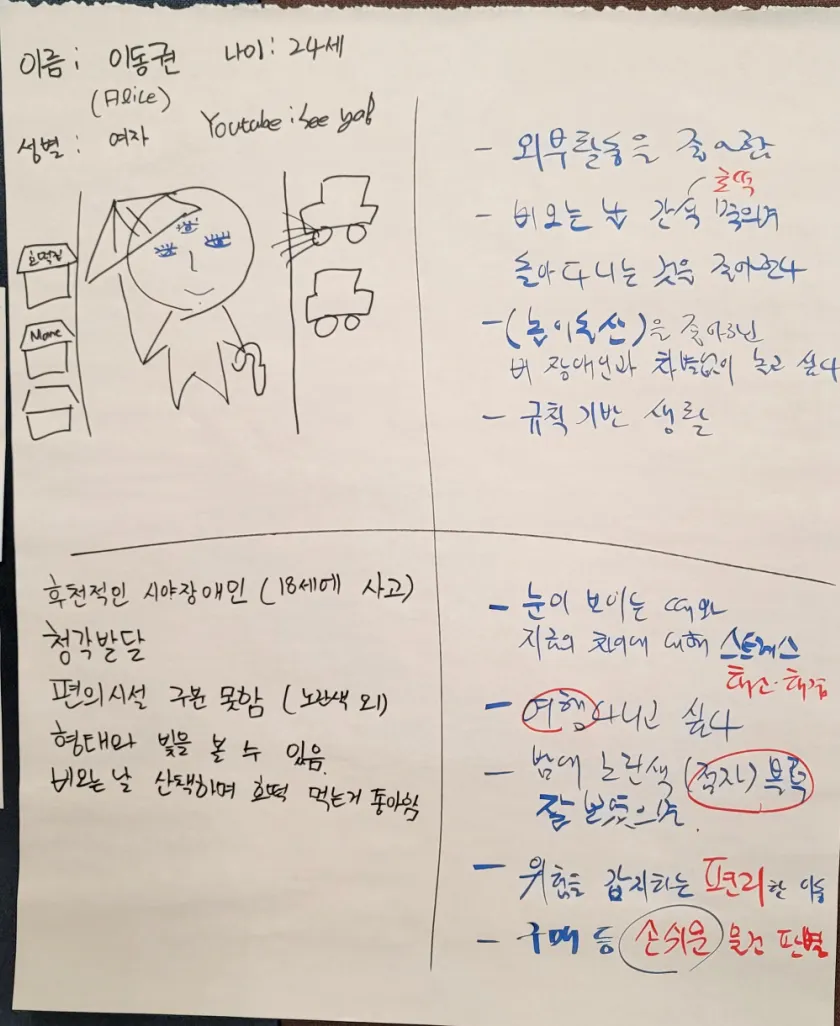 이름: 이동권 나이: 24세
(Alice)
성별: 여자 Youtube: See ya!
호떡집
More
- 외부활동을 좋아함
호떡
- 비오는 날 간식 먹으며
돌아다니는 것을 좋아한다
- (놀이동산)을 좋아하닌
비 장애인과 차별없이 놀고 싶다
- 규칙기반 생활
후천적인 시야장애인 (18세에 사고)
청각발달
편의시설 구분 못함 (노란색 외)
형태와 빛을 볼 수 있음.
비오는 날 산책하며 호떡 먹는거 좋아함
- 눈이 보이는 때와
지금의 차이에 대해 스트레스
해소·해결
- 여행 다니고 싶다
- 밤에 노란색 (점자) 블록
잘 보였으면.
- 위험을 감지하는 편리한 이동
- 구매 등 손쉬운 물건 판별